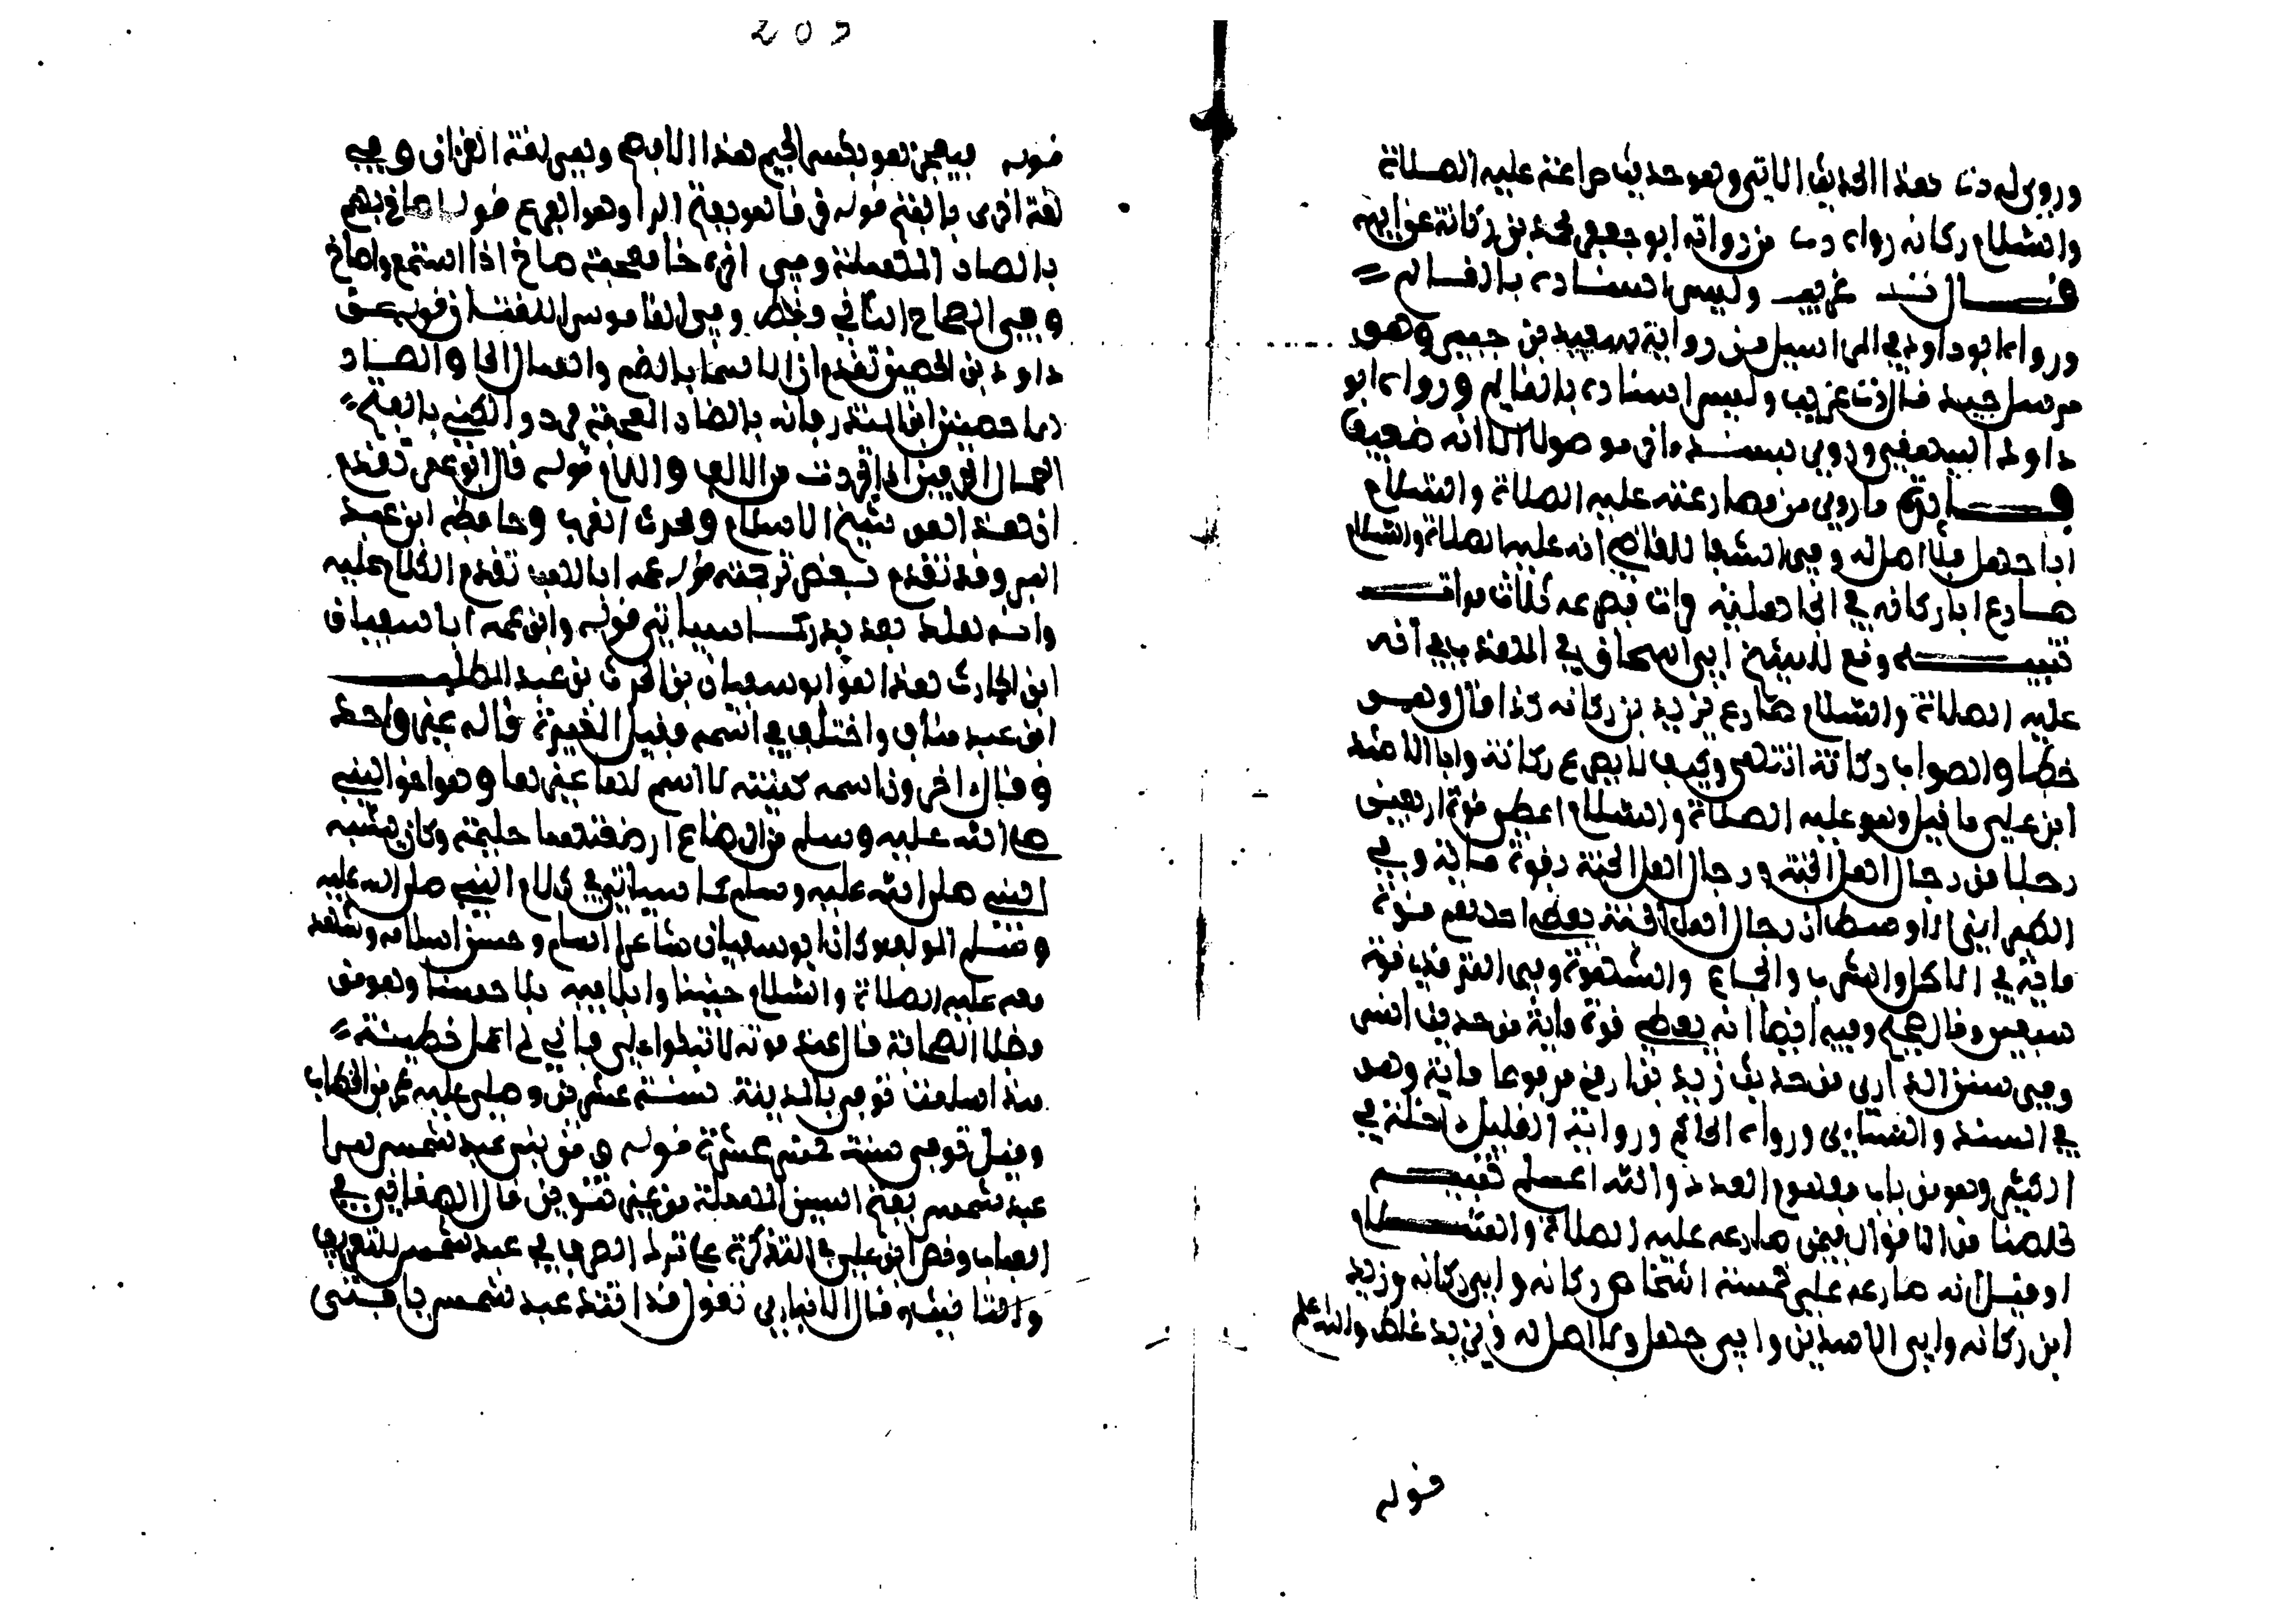 وروى له دت هذا الحديث الاتي وهو حديث مصارعته عليه الصلاة
والسلام ركانه رواه دت من رواية ابو جعفر محمد بن ركانة عن ابيه
قال ت غريب وليس اسناده بالقائم
ورواه ابو داود في المراسيل من رواية سعيد بن جبير وهو
مرسل جيد قال ت غريب وليس اسناده بالقائم ورواه ابو
داود البيهقي وروي بسند اخر موصولا الا انه ضعيف
فائدة ما روي من مصارعته عليه الصلاة والسلام
ابا جهل فلا اصل له وفي الشفا للقاضي انه عليه الصلاة والسلام
صارع ابا ركانه في الجاهلية وانه صرعه ثلاث مرات
تنبيه وقع للشيخ ابي اسحاق في المهذب في انه
عليه الصلاة والسلام صارع يزيد بن ركانه كذا قال وهو
خطا والصواب ركانة انتهى وكيف لا يصرع ركانة وابا الاشد
ابن علي ما قيل وهو عليه الصلاة والسلام اعطي قوة اربعين
رجلا من رجال اهل الجنة ورجال اهل الجنة بقوة مائة وفي
الطبراني الاوسط ان رجال اهل الجنة يعطى احدهم قوة
مائة في الاكل والشرب والجماع والشهوة وفي الترمذي قوة
سبعين وقال صحيح وفيه ايضا انه يعطى قوة مائة من حديث انس
وفي سنن الدارمي من حديث زيد بن ارقم مرفوعا مائة وهو
في المسند والنسائي ورواه الحاكم ورواية القليل داخلة في
الكثير وهو من باب مفهوم العدد والله اعلم تنبيه
تخلصنا من الاقوال فيمن صارعه عليه الصلاة والسلام
او قيل انه صارعه على خمسة اشخاص ركانه وابي ركانه ويزيد
ابن ركانه وابي الاسدين وابي جهل ولا اصل له ويزيد غلط والله اعلم
قوله
205
قوله فيعجز هو بكسر الجيم هذا الافصح وهي لغة القران وفي
لغة اخرى بالفتح قوله فرقا هو بفتح الرا وهو الفزع قوله اصاخ بهم
بالصاد المهملة وفي اخره خا معجمة صاخ اذا استمع واصاخ
وفي الصحاح الثاني فقط وفي القاموس اللغتان قوله عن
داود بن الحصين تقدم ان الاسما بالضم واهمال الحا والصاد
الا حضين بن المنذر فانه بالضاد المعجمة فرد والكنى بالفتح
اهمال اخرين اذا جردت من الالف واللام قوله قال ابو عمر تقدم
ان هذا هو شيخ الاسلام ومحدث الغرب وحافظه ابن عبد
البر وقد تقدم بعض ترجمته قوله عمه ابا لهب تقدم الكلام عليه
وانه هلك بعد بدر كما سياتي قوله وابن عمه ابا سفيان
ابن الحارث هذا هو ابو سفيان بن الحرث بن عبد المطلب
ابن عبد مناف واختلف في اسمه فقيل المغيرة قاله غير واحد
وقال اخرون اسمه كنيته لا اسم له غيرها وهو اخو النبي
صلى الله عليه وسلم من الرضاع ارضعتهما حليمة وكان يشبه
النبي صلى الله عليه وسلم كما سياتي في كلام النبي صلى الله عليه
وسلم المولف وكان ابو سفيان شاعرا اسلم وحسن اسلامه وشهد
معه عليه الصلاة والسلام حنينا وابلا فيه بلا حسنا وهو من
فضلا الصحابة قال عند موته لا تبكوا علي فاني لم اعمل خطيئة
منذ اسلمت توفي بالمدينة سنة عشرين وصلى عليه عمر بن الخطاب
وقيل توفي سنة خمس عشرة قوله ومن بني عبد شمس
عبد شمس بفتح السين المهملة من غير تنوين قال الصغاني في
العباب ونص ابو علي في التذكرة على ترك الصرف في عبد شمس للتعريف
والتانيث قال الانباري تقول هذا عبد شمس يا فتى